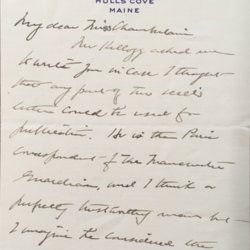 HULLS COVE
MAINE
My dear Miss Chamberlain
Mr Kellogg asked me
to write you in case I thought
that any part of this week's
letter could be used for
publication. He is the Paris
correspondent of the Manchester
Guardian, and I think a
perfectly trustworthy man but
I imagine he considered the